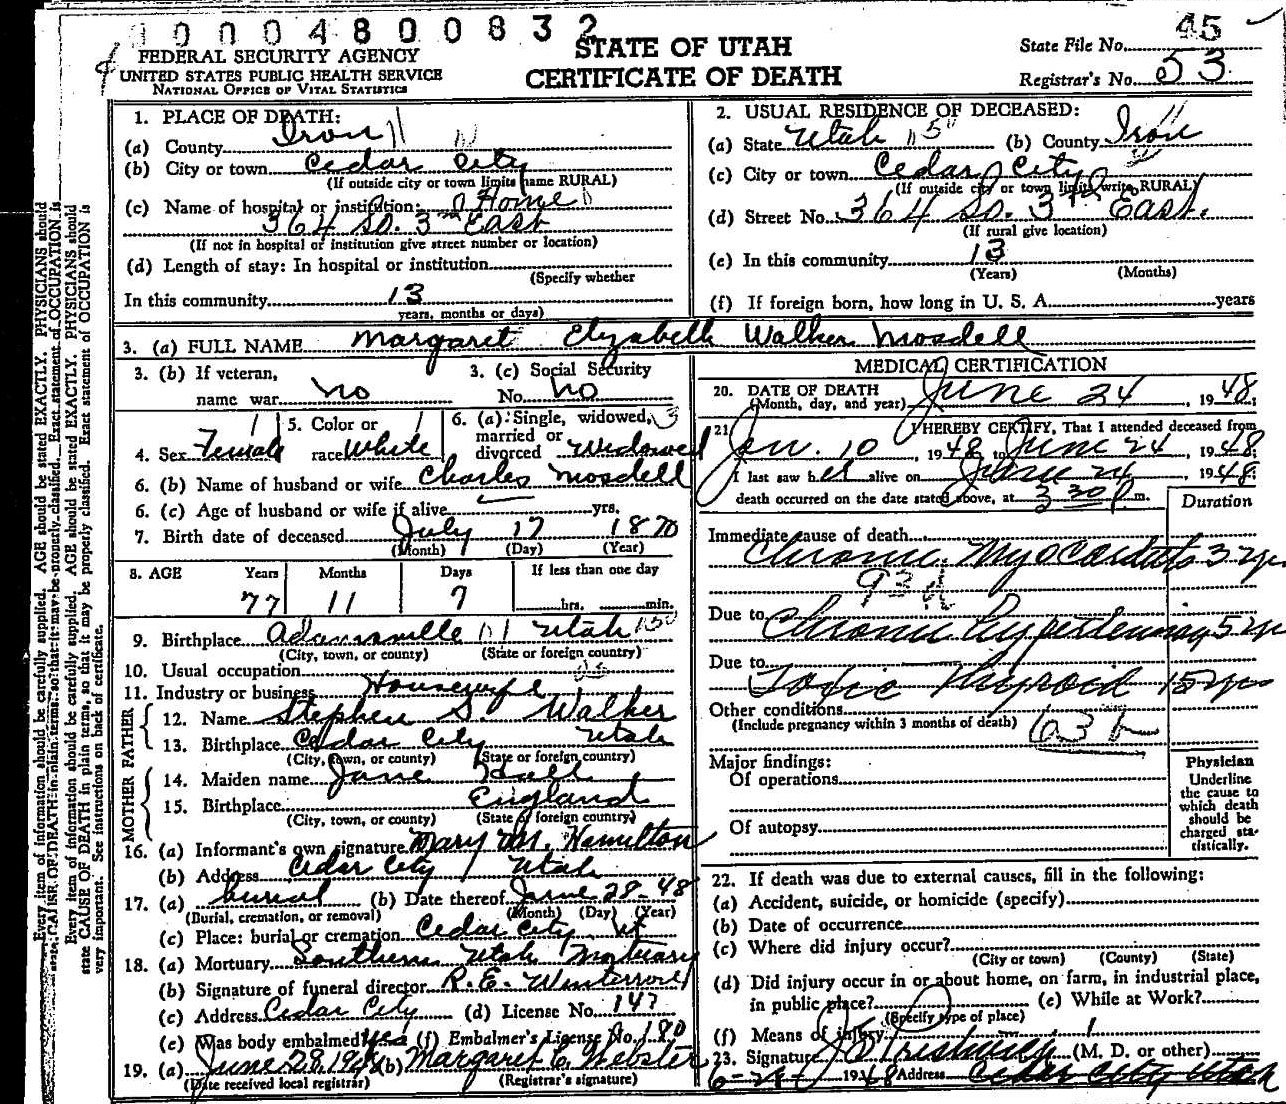 00004800832
FEDERAL SECURITY AGENCY
UNITED STATES PUBLIC HEALTH SERVICE
NATIONAL OFFICE OF VITAL STATISTICS
STATE OF UTAH
CERTIFICATE OF DEATH
State File No. 45
Registrar's No. 53
1. PLACE OF DEATH:
(a) County Iron
(b) City or town Cedar City
(If outside city or town limits name RURAL)
(c) Name of hospital or institution: Home
364 So. 3rd East
(If not in hospital or institution give street number or location)
(d) Length of stay: In hospital or institution
(Specify whether
In this community 13
years, months or days)
2. USUAL RESIDENCE OF DECEASED:
(a) State Utah (b) County Iron
(c) City or town Cedar City
(If outside city or town limits write RURAL)
(d) Street No. 364 So. 3rd East.
(If rural give location)
(e) In this community 13
(Years) (Months)
(f) If foreign born, how long in U. S. A. years
3. (a) FULL NAME Margaret Elizabeth Walker Mosdell
3. (b) If veteran,
name war no
3. (c) Social Security
No. no
4. Sex Female
5. Color or
race White
6. (a) Single, widowed, 3
married or
divorced Widowed
6. (b) Name of husband or wife Charles Mosdell
6. (c) Age of husband or wife if alive yrs.
7. Birth date of deceased July 17 1870
(Month) (Day) (Year)
8. AGE Years Months Days If less than one day
77 11 7 hrs. min.
9. Birthplace Adamsville Utah
(City, town, or county) (State or foreign country)
10. Usual occupation
11. Industry or business Housewife
FATHER
12. Name Stephen S. Walker
13. Birthplace Cedar City Utah
(City, town, or county) (State or foreign country)
MOTHER
14. Maiden name Jane Hall
15. Birthplace England
(City, town, or county) (State of foreign country)
16. (a) Informant's own signature Mary M. Hamilton
(b) Address Cedar City Utah
17. (a) burial (b) Date thereof June 28 48
(Burial, cremation, or removal) (Month) (Day) (Year)
(c) Place: burial or cremation Cedar City Ut
18. (a) Mortuary Southern Utah Mortuary
(b) Signature of funeral director R.E. Winterrowd
(c) Address Cedar City (d) License No. 147
(e) Was body embalmed Yes (f) Embalmer's License No. 180
19. (a) June 28, 1948 (b) Margaret C. Webster
(Date received local registrar) (Registrar's signature)
MEDICAL CERTIFICATION
20. DATE OF DEATH
(Month, day, and year) June 24, 1948;
21. I HEREBY CERTIFY, That I attended deceased from
Jan. 10, 1948, to June 24, 1948.
I last saw her alive on June 24, 1948;
death occurred on the date stated above, at 3 30 P. m.
Duration
Immediate cause of death
Chronic Myocarditis 3 yrs
93d
Due to Chronic Hypertension 5 yrs
Due to
Toxic Thyroid 15 yrs
Other conditions
(Include pregnancy within 3 months of death) 63 b
Major findings:
Of operations
Of autopsy
Physician
Underline
the cause to
which death
should be
charged sta-
tistically.
22. If death was due to external causes, fill in the following:
(a) Accident, suicide, or homicide (specify)
(b) Date of occurrence
(c) Where did injury occur?
(City or town) (County) (State)
(d) Did injury occur in or about home, on farm, in industrial place,
in public place? (e) While at Work?
(Specify type of place)
(f) Means of injury
23. Signature (M. D. or other)
1948 Address Cedar City Utah
Every item of information should be carefully supplied. AGE should be stated EXACTLY. PHYSICIANS should
state CAUSE OF DEATH in plain terms, so that it may be properly classified. Exact statement of OCCUPATION is
very important. See instructions on back of certificate.